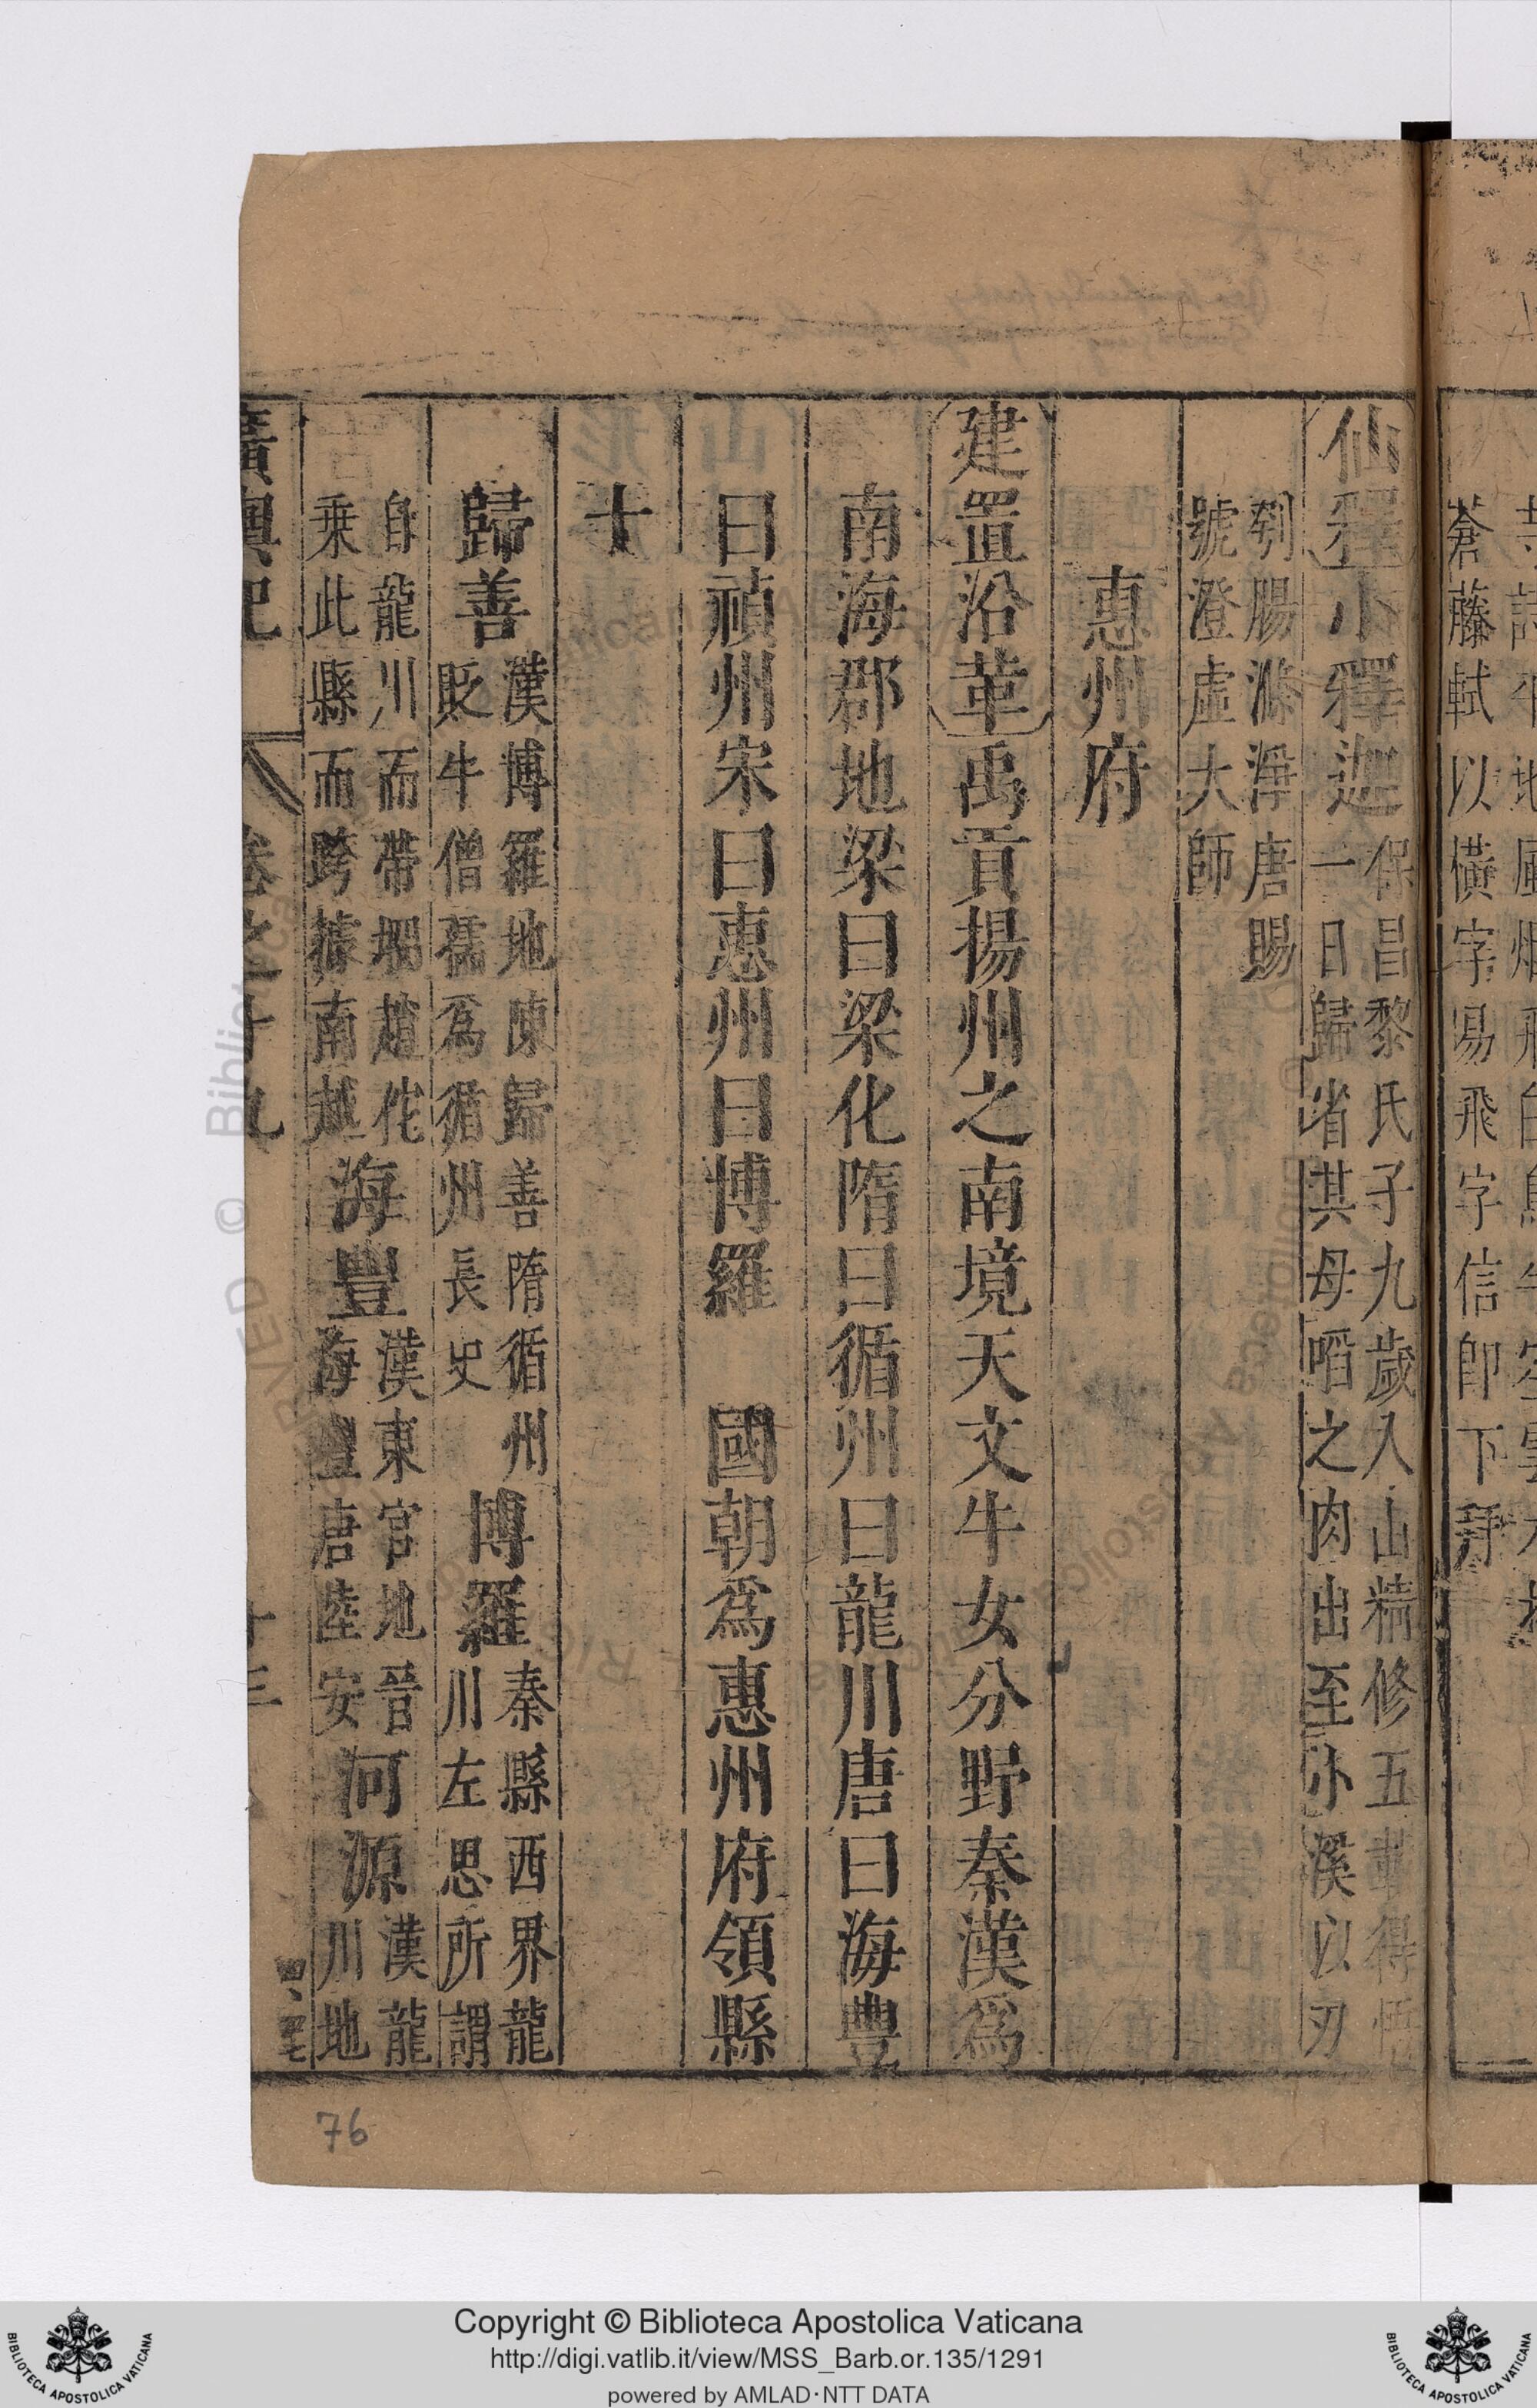 蒼藤軾以橫字易飛字信卽下拜
仙釋小釋迦保昌黎氏子九歲入山精修五載得悟
一日歸省其母㗖之肉出至小溪以刃
刳腸滌淨唐賜
號澄虛大師
惠州府
建置沿革禹貢揚州之南境天文牛女分野秦漢爲
南海郡地梁曰梁化隋曰循州曰龍川唐曰海豊
曰禎州宋曰惠州曰博羅 國朝爲惠州府領縣
十
歸善漢博羅地陳歸善隋循州
貶牛僧孺爲循州長史
博羅秦縣西界龍
川左思所謂
自龍川而帶坰趙佗
乘此縣而跨據南越
海豐漢東官地晉
海豐唐陸安
河源漢龍
川地
廣輿記 卷之十九 十三
76
Copyright © Biblioteca Apostolica Vaticana
http://digi.vatlib.it/view/MSS_Barb.or.135/1291
powered by AMLAD·NTT DATA
BIBLIOTECA APOSTOLICA VATICANA
BIBLIOTECA APOSTOLICA VATICANA